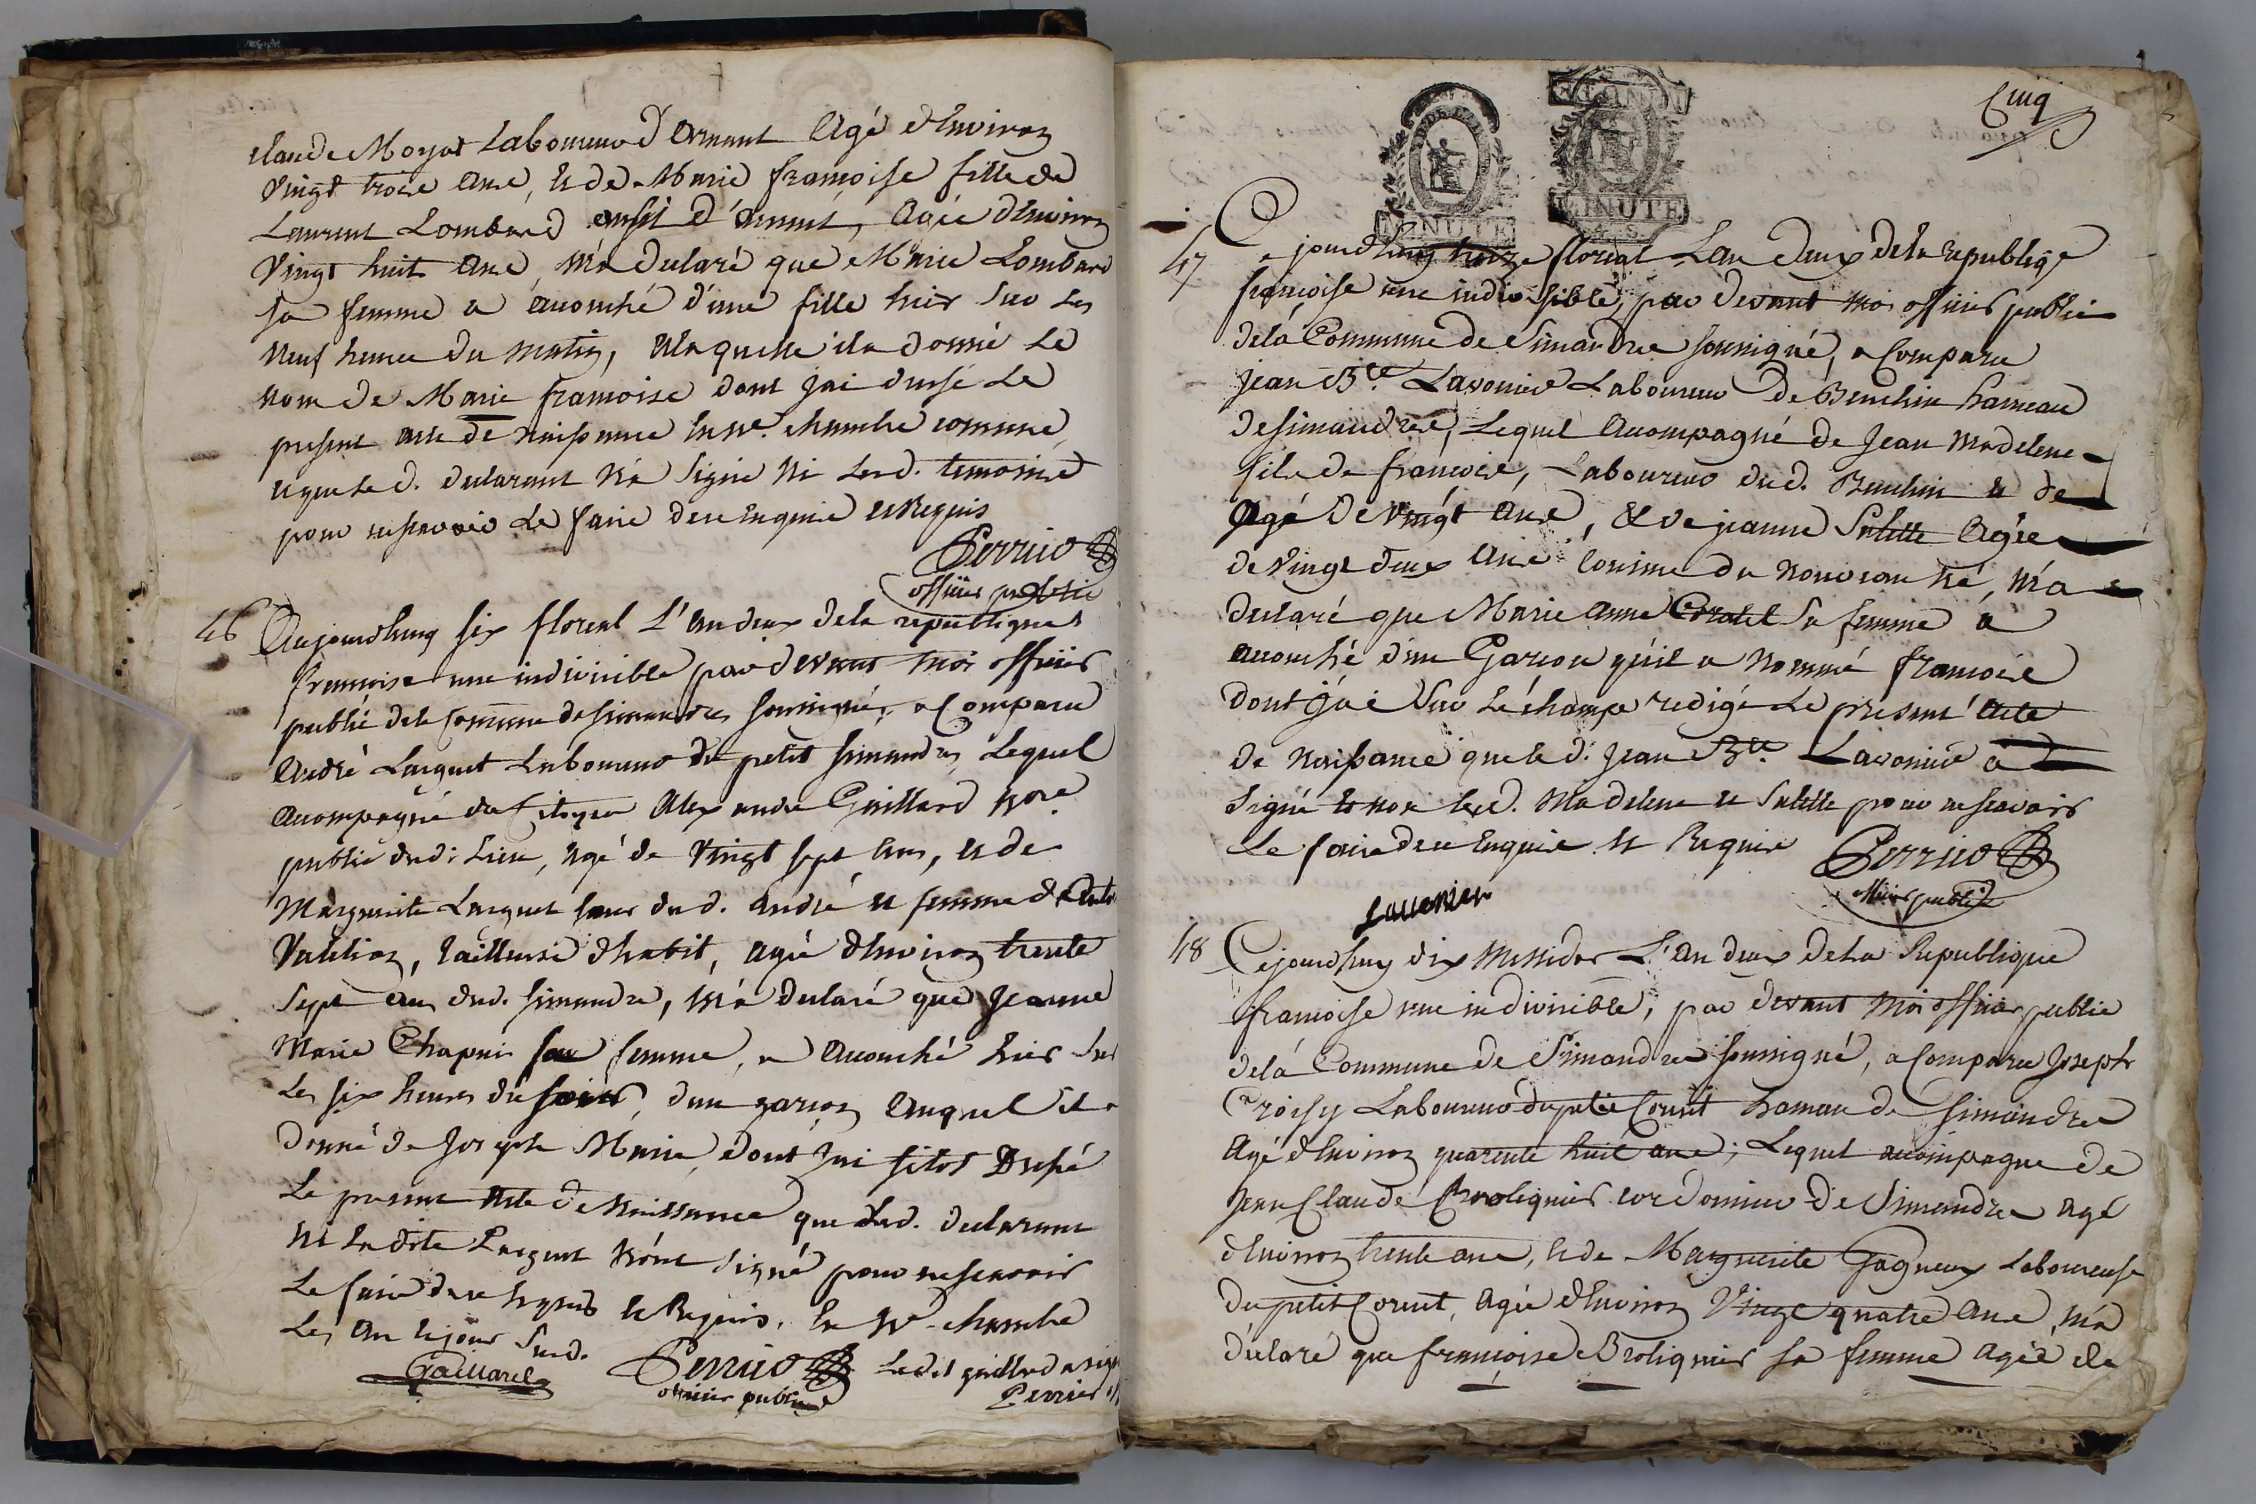 claude Moyat Laboureur d'Arnant Agé d'Environ
vingt trois ans, et de Marie francoise fille de
Laurent Lombard aussi d'arnant, agée d'Environ
vingt huit ans, m'a declaré que Marie Lombard
sa femme a acouché d'une fille hier sur les
neuf heures du matin, a laquelle il a donné le
nom de Marie francoise dont jai dressé le
present acte de naissance en ne. chambre comune
et que le d. declarant n'a signé ni les d. temoins
pour ne scavoir le faire de ce Enquis et Requis
Perrier
officier public
46 Aujourdhuy six floreal L'an deux de la republique
francoise une indivisible par devant moi officier
public de la commune de simandres soussigné, a Comparu
André Larguet Laboureur du petit simandres, Lequel
acompagné du Citoyen Alexandre Gaillard nore
public dud. Lieu, agé de vingt sept ans, et de
Marguerite Larguet soeur dud. André et femme d'
, tailleuse d'habit, agée d'Environ trente
sept ans dud. simandre, m'a declaré que Jeanne
Marie Chapuis sa femme, a acouché hier sur
les six heures du soir, d'un garçon auquel il a
donné de Joseph Marie, dont jai sitot Dressé
le present acte de Naissance que led. declarant
ni Ladite Larguet n'ont signé pour ne scavoir
le faire de ce Enquis et Requis, En ne chambre
les an et jour susd.
Gaillard Perrier Ledit gaillard a signé
officier public Perrier
Cinq
MINUTE MINUTE
47 Ce jourdhuy treize floreal Lan deux de la republique
francoise une indivisible, par devant moi officier public
de la Commune de Simandre soussigné, a Comparu
jean Bte. Lavenier Laboureur de Beuchin hameau
de simandre, Lequel acompagné de Jean Madelene
fils de françois, Laboureur dud. Beuchin et de
Agé de vingt ans, et de jeanne Salette Agée
de vingt deux ans cousine du nouveau né, m'a
declaré que Marie anne sa femme a
acouché d'un Garçon qu'il a nommé françois
dont j'ai sur le champ redigé Le present acte
de naissance que le d. jean Bte. Lavenier a
signé et non led. Madelene et Salette pour ne scavoir
le faire de ce Enquis et Requis Perrier
officier public
Lavenier
48 Cejourdhuy dix Messidor L'an deux de la Republique
francoise une indivisible, par devant moi officier public
de la Commune de Simandre soussigné, a Comparu Joseph
Croisy Laboureur du petit Cornet hameau de Simandre
Agé d'Environ quarente huit ans; Lequel acompagné de
Jean Claude Broliquier cordonnier de Simandre agé
d'Environ trente ans, et de Marguerite Gagneux Laboureuse
du petit Cornet, agée d'Environ Vingt quatre ans, m'a
declaré que françoise Broliquier sa femme agée de